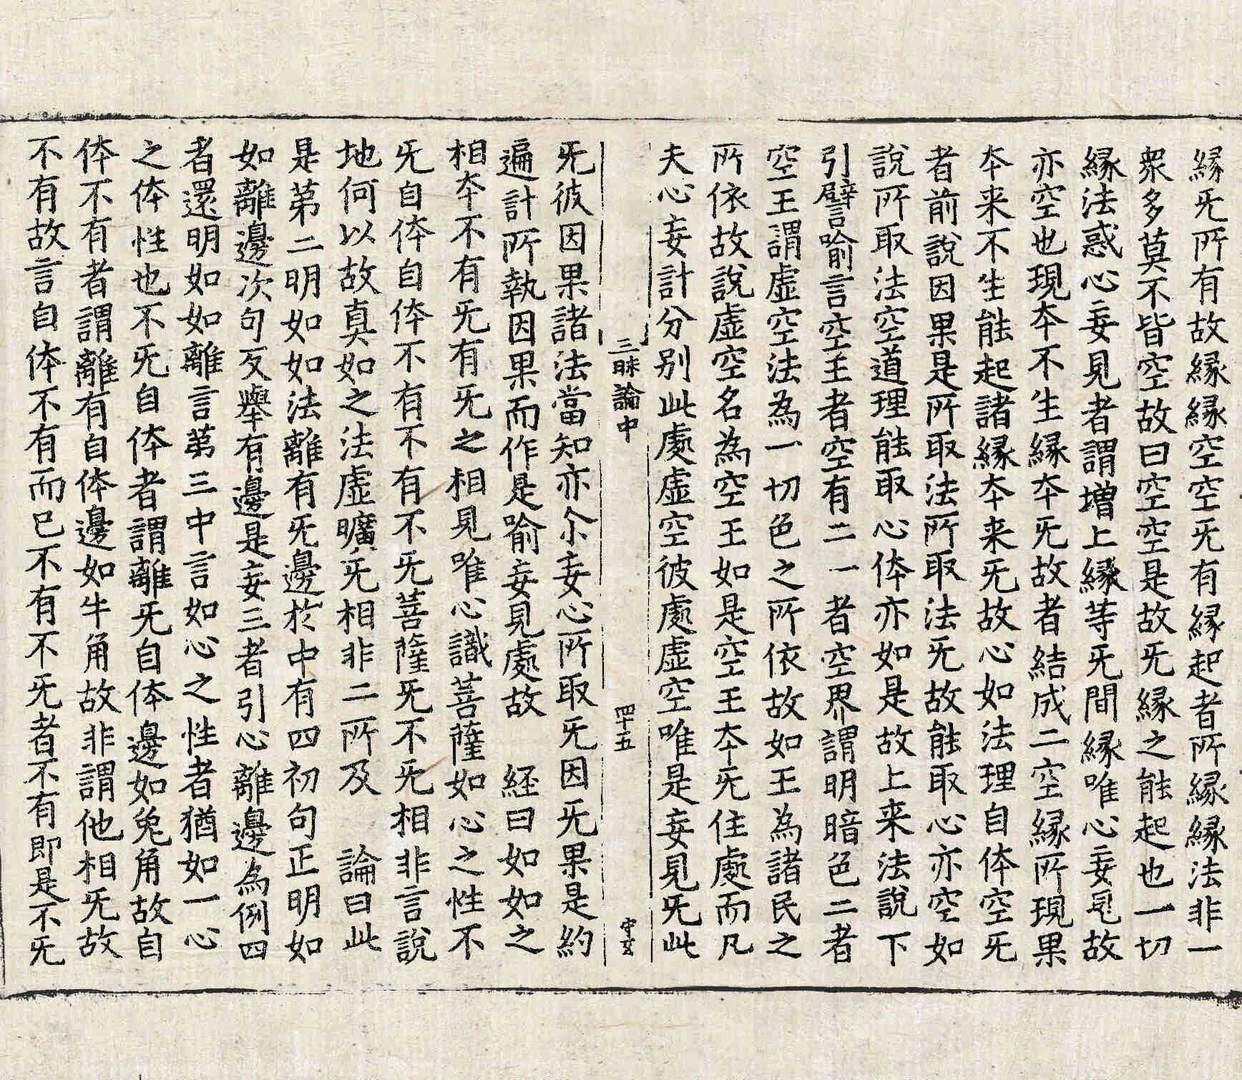 縁旡所有故縁縁空空旡有縁起者所縁縁法非一
衆多莫不皆空故曰空空是故旡縁之能起也一切
縁法惑心妄見者謂増上縁等旡間縁唯心妄見故
亦空也現夲不生縁夲旡故者結成二空縁所現果
夲来不生能起諸縁夲来旡故心如法理自体空旡
者前說因果是所取法所取法旡故能取心亦空如
說所取法空道理能取心体亦如是故上来法說下
引譬喻言空王者空有二一者空界謂明暗色二者
空王謂虛空法為一切色之所依故如王為諸民之
所依故說虛空名為空王如是空王夲旡住處而凡
夫心妄計分别此處虛空彼處虛空唯是妄見旡此
三昧論中 四十五 守玄
旡彼因果諸法當知亦尒妄心所取旡因旡果是約
遍計所執因果而作是喻妄見處故 経曰如如之
相夲不有旡有旡之相見唯心識菩薩如心之性不
旡自体自体不有不有不旡菩薩旡不旡相非言說
地何以故真如之法虛曠旡相非二所及 論曰此
是第二明如如法離有旡邊於中有四初句正明如
如離邊次句反舉有邊是妄三者引心離邊為例四
者還明如如離言第三中言如心之性者猶如一心
之体性也不旡自体者謂離旡自体邊如兔角故自
体不有者謂離有自体邊如牛角故非謂他相旡故
不有故言自体不有而已不有不旡者不有即是不旡